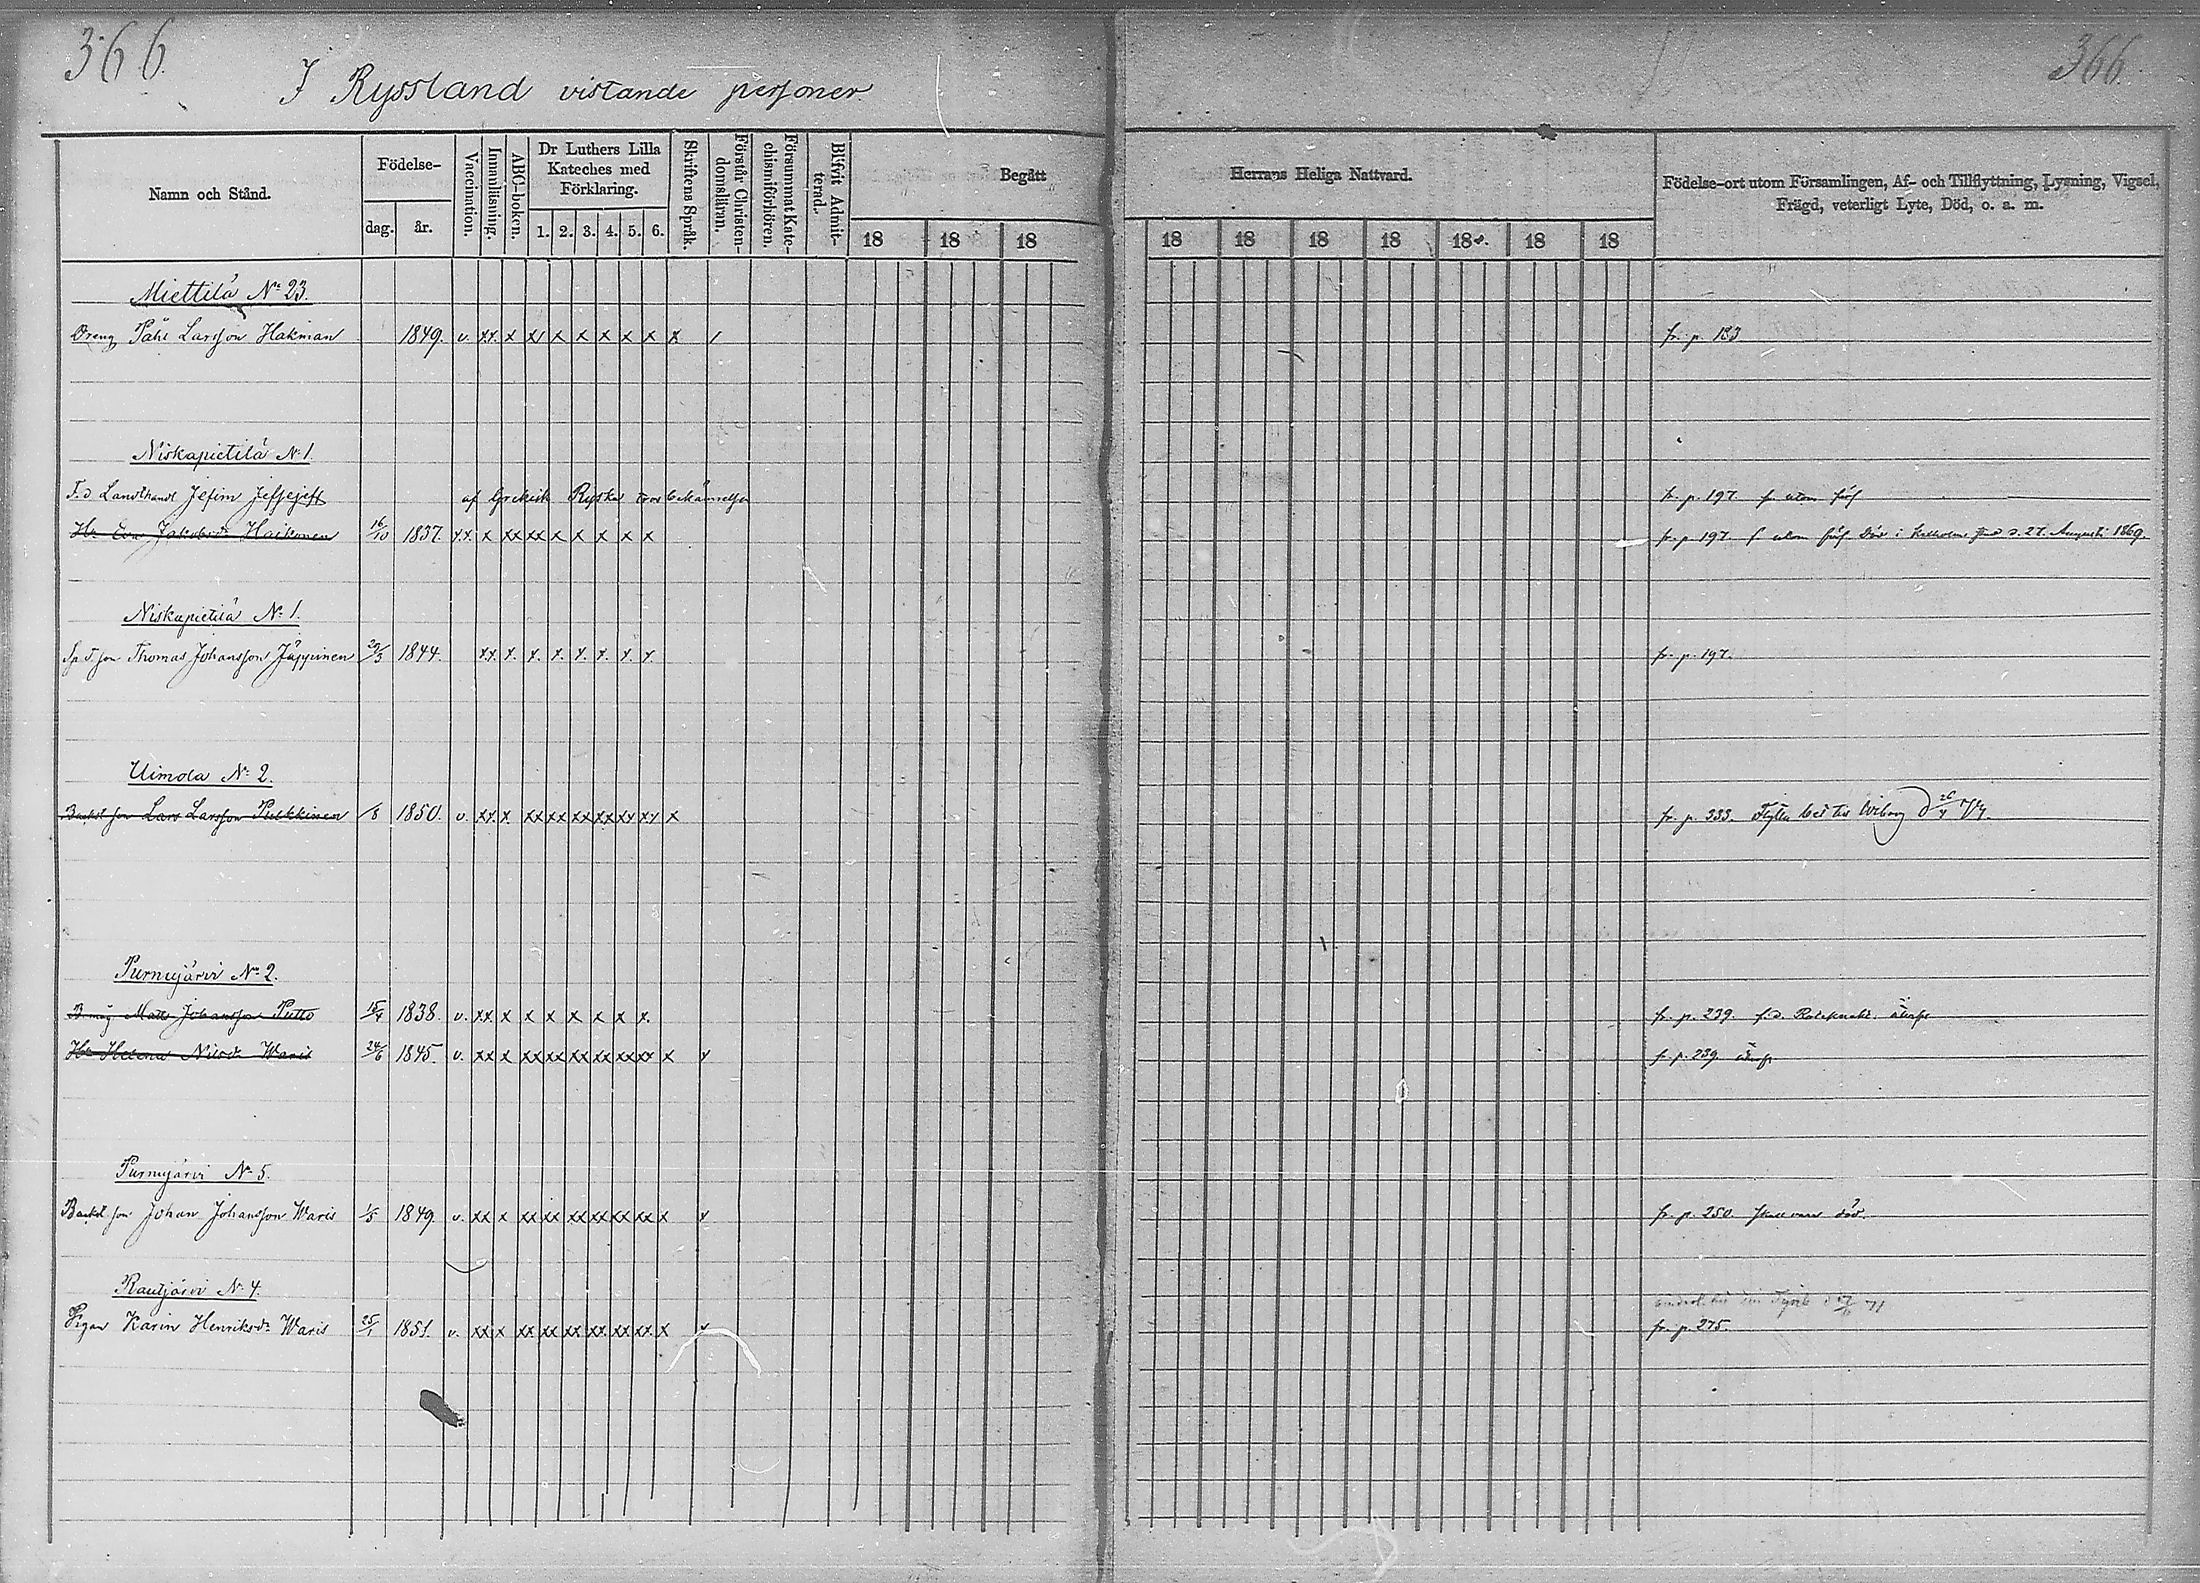 366.
366
I Ryssland vistande personer
Namn och Stånd.
Födelse-
dag. år.
Vaccination.
Innanläsning.
ABC-boken.
Dr Luthers Lilla
Kateches med
Förklaring.
1. 2. 3. 4. 5. 6.
Skriftens Språk.
Förstår Christen-
domsläran.
Försummat Kate-
chismiförhören.
Blifvit Admit-
terad.
Begått
18 18 18
Herrans Heliga Nattvard.
18 18 18 18 18 18 18
Födelse-ort utom Församlingen, Af- och Tillflyttning, Lysning, Vigsel,
Frägd, veterligt Lyte, Död, o. a. m.
Miettilä No 23.
Dreng Påhl Larsson Hakman 1849. v. xx x xx x x x x x x / fr. p. 183
Niskapietilä No 1.
F.d. Landthand Jefim af Grekisk Ryska trosbekännelsen fr. p. 197. f. utom förs
Hu Eva Jakobsdr Haikonen 16/10 1837. xx x xx xx x x x x x fr. p. 197 f. utom förs Död i d. 27. Augusti 1869.
Niskapietilä No 1.
Thomas Johansson Jäppinen 29/3 1844. xx x. x. x. x. x. x. x. fr. p. 197.
Uimola No 2.
Backst son Lars Larsson Pulkkinen /8 1850. v. xx x. xx xx xx xx xx xx x fr. p. 333. Flytt bet till Wiborg d 26/4
Purnujärvi No 2.
B. måg Matts Johansson Putto 15/4 1838. v. xx x x x x x x x. fr. p. 239. f.d.
Hu Helena Nilsdr Waris 24/6 1845. v. xx x xx xx xx xx xx xx x x fr. p. 239.
Purnujärvi No 5.
Backst son Johan Johansson Waris 1/5 1849 v. xx x xx xx xx xx xx xx x x fr. p. 250. skall vara död.
Rautjärvi No 4.
Pigan Karin Henriksdr Waris 25/1 1851. v. xx x xx xx xx xx xx xx x x fr. p. 275.